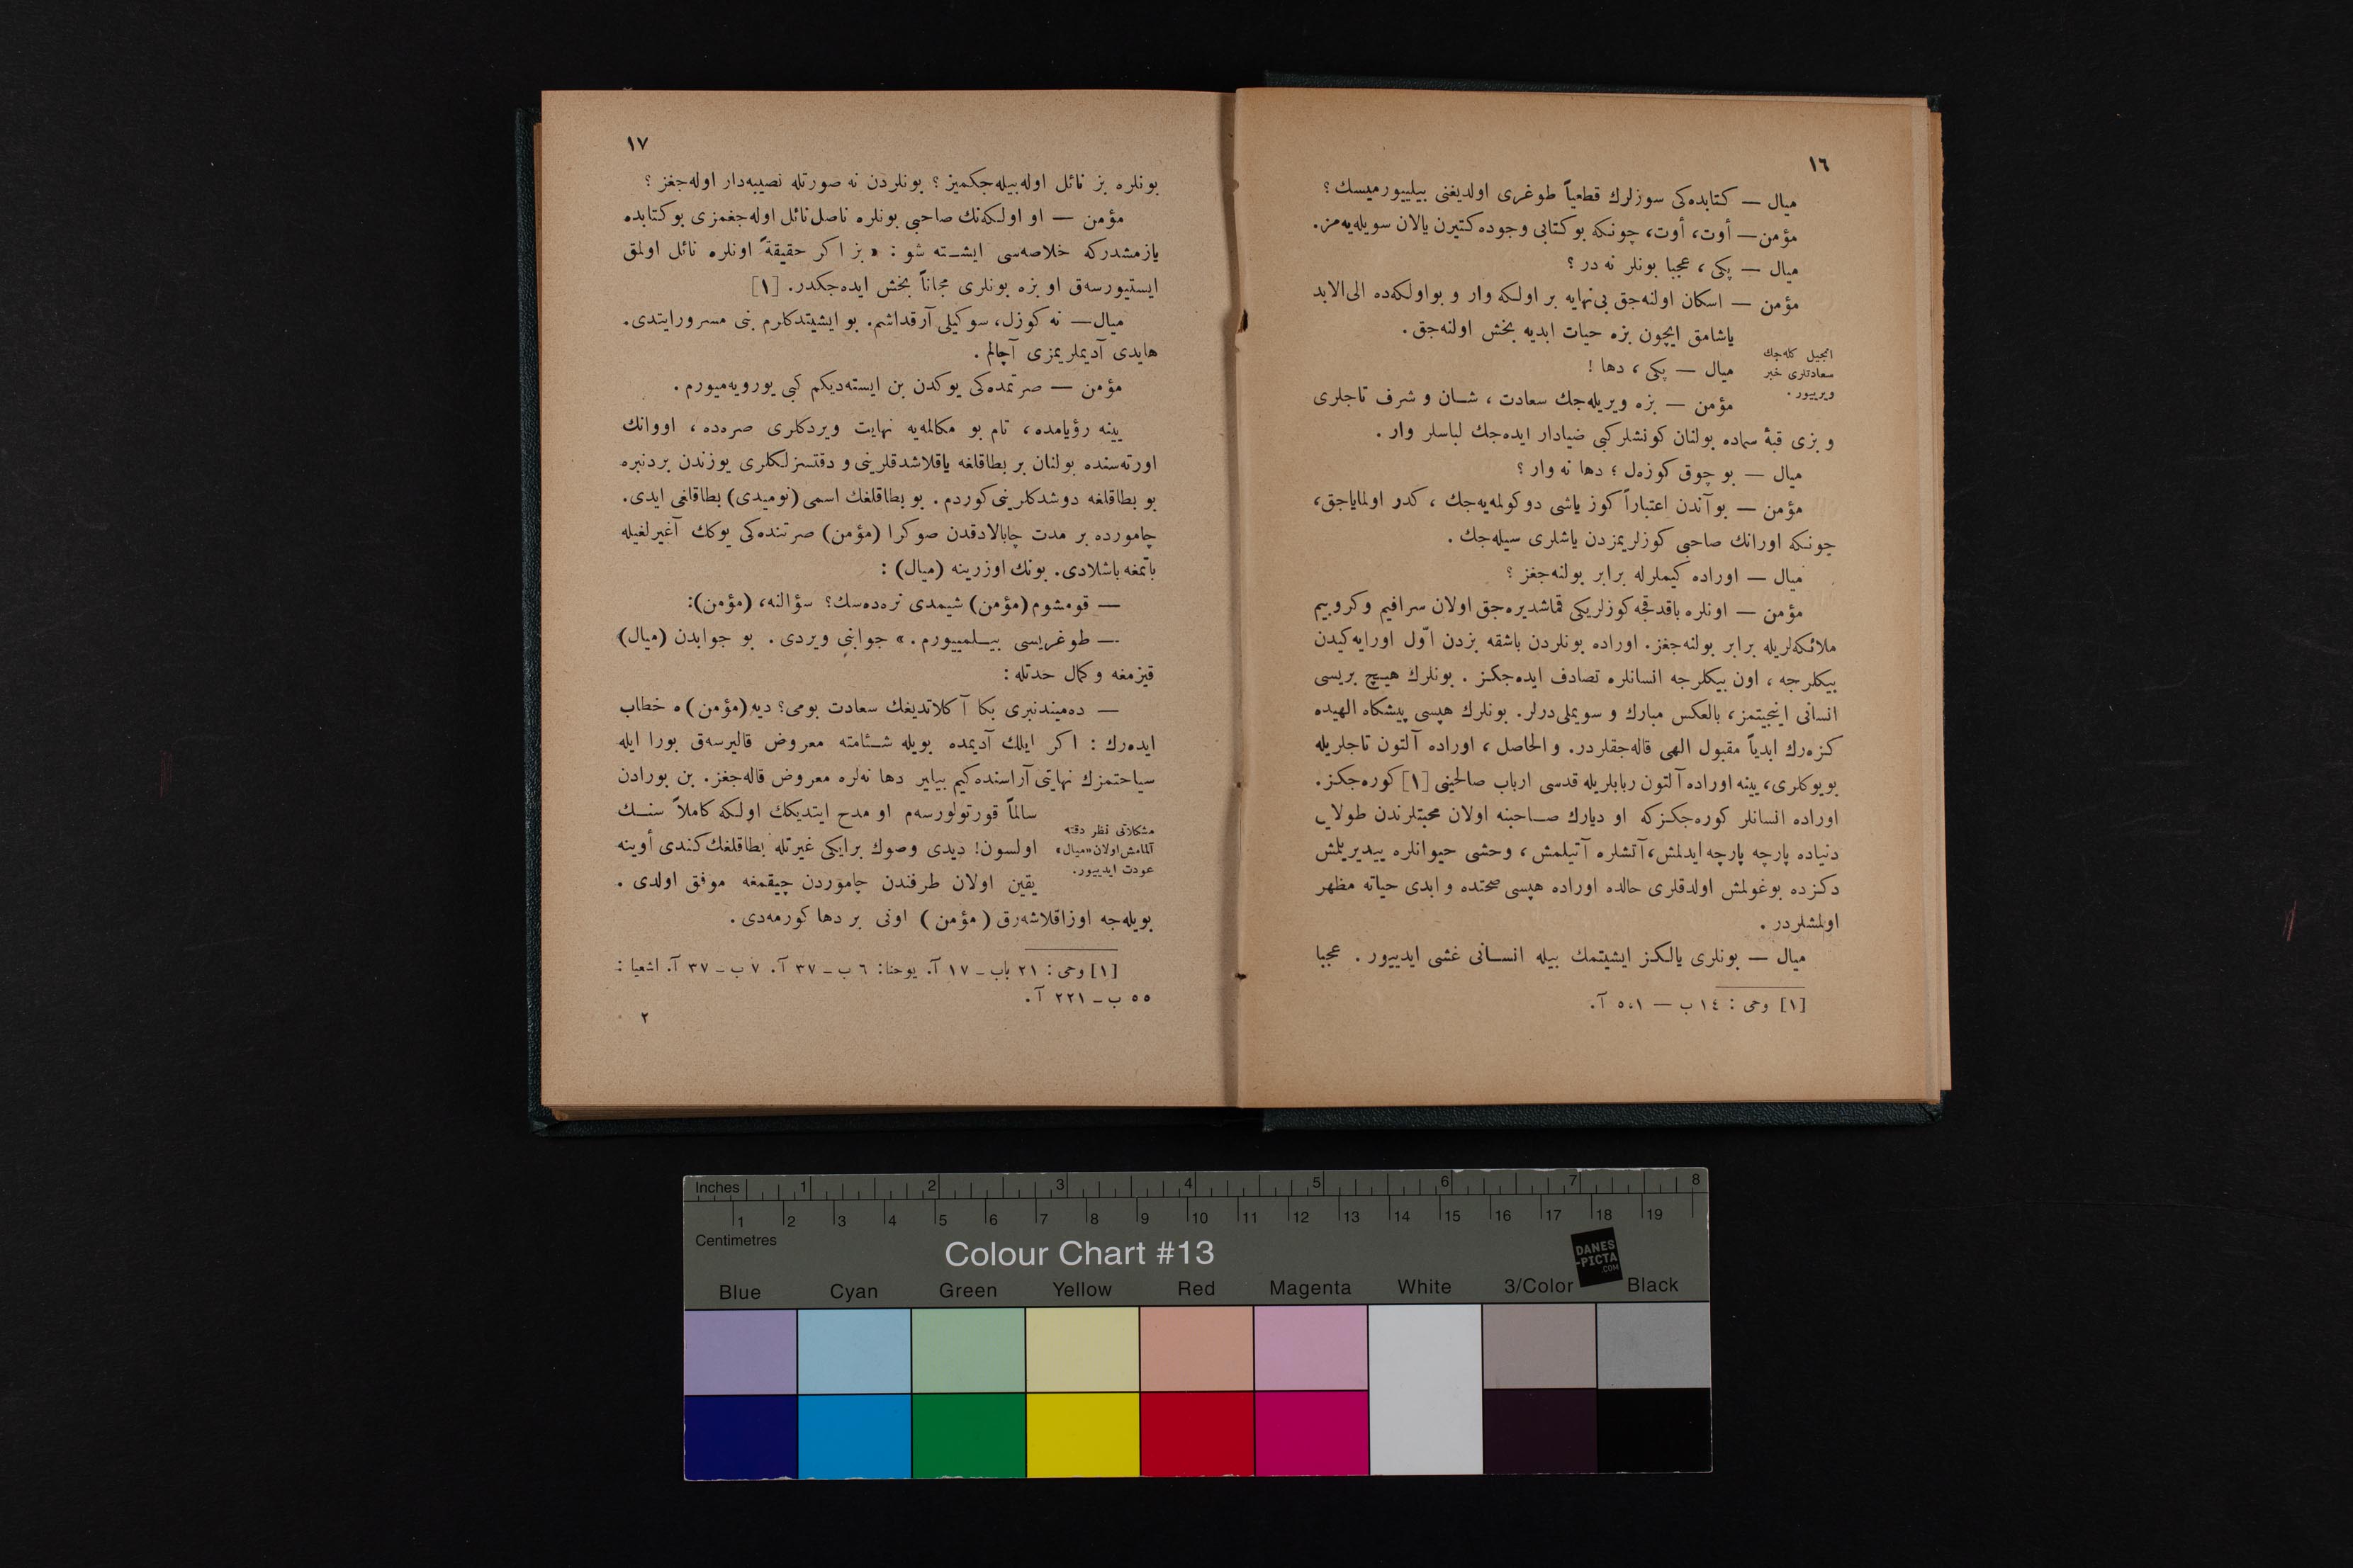 ١٦
ميال — كتابده‌كی سوزلرك قطعياً طوغری اولديغنی بيلييورميسك ؟
مؤمن — أوت، أوت، چونكه بو كتابی وجوده كتيرن يالان سويله‌يه‌مز.
ميال — پكی ، عجبا بونلر نه در ؟
مؤمن — اسكان اولنه‌جق بی‌نهايه بر اولكه وار و بواولكه‌ده الی‌الابد
ياشامق ايچون بزه حيات ابديه بخش اولنه‌جق .
انجيل كله‌جك
سعادتلری خبر
ويرييور .
ميال — پكی ، دها !
مؤمن — بزه ويريله‌جك سعادت ، شان و شرف تاجلری
و بزی قبۀ سماده بولنان كونشلركبی ضيادار ايده‌جك لباسلر وار .
ميال — بو چوق كوزه‌ل ؛ دها نه وار ؟
مؤمن — بوآندن اعتباراً كوز ياشی دوكولمه‌يه‌جك ، كدر اولماياجق،
چونكه اورانك صاحبی كوزلريمزدن ياشلری سيله‌جك .
ميال — اوراده كيملرله برابر بولنه‌جغز ؟
مؤمن — اونلره باقدقجه كوزلريكی قماشديره‌جق اولان سرافيم وكروبيم
ملائكه‌لريله برابر بولنه‌جغز. اوراده بونلردن باشقه بزدن اول اورايه كيدن
بيكلرجه ، اون بيكلرجه انسانلره تصادف ايده‌جكز . بونلرك هيچ بريسی
انسانی اينجيتمز، بالعكس مبارك و سويملی‌درلر. بونلرك هپسی پيشكاه الهيده
كزه‌رك ابدياً مقبول الهی قاله‌جقلردر. والحاصل ، اوراده آلتون تاجلريله
بويوكلری، يينه اوراده آلتون ربابلريله قدسی ارباب صالحينی [١] كوره‌جكز.
اوراده انسانلر كوره‌جكزكه او ديارك صاحبنه اولان محبتلرندن طولايی
دنياده پارچه پارچه ايدلمش، آتشلره آتيلمش ، وحشی حيوانلره ييديريلمش
دكزده بوغولمش اولدقلری حالده اوراده هپسی صحتده و ابدی حياته مظهر
اولمشلردر .
ميال — بونلری يالكز ايشيتمك بيله انسانی غشی ايدييور . عجبا
[١] وحی : ١٤ ب — ٥،١ آ.
١٧
بونلره بز نائل اوله‌بيله‌جكميز ؟ بونلردن نه صورتله نصيبه‌دار اوله‌جغز ؟
مؤمن — او اولكه‌نك صاحبی بونلره ناصل نائل اوله‌جغمزی بو كتابده
يازمشدركه خلاصه‌سی ايشته شو : « بز اكر حقيقةً اونلره نائل اولمق
ايستيورسه‌ق او بزه بونلری مجاناً بخش ايده‌جكدر. [١]
ميال— نه كوزل، سوكيلی آرقداشم. بو ايشيتدكلرم بنی مسرورايتدی.
هايدی آديملريمزی آچالم .
مؤمن — صرتمده‌كی يوكدن بن ايسته‌ديكم كبی يورويه‌ميورم .
يينه رؤيامده، تام بو مكالمه‌يه نهايت ويردكلری صره‌ده ، اووانك
اورته‌سنده بولنان بر بطاقلغه ياقلاشدقلرينی و دقتسزلكلری يوزندن بردنبره
بو بطاقلغه دوشدكلرينی كوردم . بو بطاقلغك اسمی (نوميدی) بطاقلغی ايدی.
چاموردە بر مدت چابالادقدن صوكرا (مؤمن) صرتنده‌كی يوكك آغيرلغيله
باتمغه باشلادی. بونك اوزرينه (ميال) :
— قومشوم (مؤمن) شيمدی نره‌ده‌سك؟ سؤالنه، (مؤمن):
— طوغريسی بيلمييورم . » جوابنی ويردی . بو جوابدن (ميال)
قيزمغه وكمال حدتله :
— ده‌ميندنبری بكا آكلاتديغك سعادت بومی؟ ديه (مؤمن) ه خطاب
ايده‌رك : اكر ايلك آديمده بويله شئامته معروض قاليرسه‌ق بورا ايله
سياحتمزك نهايتی آراسنده كيم بيلير دها نه‌لره معروض قاله‌جغز . بن بورادن
سالماً قورتولورسه‌م او مدح ايتديكك اولكه كاملاً سنك
مشكلاتی نظر دقته
آلمامش‌اولان«ميال»
عودت ايدييور.
اولسون! ديدی وصوك برايكی غيرتله بطاقلغك كندی أوينه
يقين اولان طرفندن چاموردن چيقمغه موفق اولدی .
بويله‌جه اوزاقلاشه‌رق (مؤمن) اونی بر دها كورمه‌دی .
[١] وحی : ٢١ باب ـ ١٧ آ. يوحنا: ٦ ب ـ ٣٧ آ. ٧ ب ـ ٣٧ آ. اشعيا :
٥٥ ب ـ ٢٢١ آ .
٢
Inches 1 2 3 4 5 6 7 8
1 2 3 4 5 6 7 8 9 10 11 12 13 14 15 16 17 18 19
Centimetres
Colour Chart #13
DANES
-PICTA
.COM
Blue Cyan Green Yellow Red Magenta White 3/Color Black